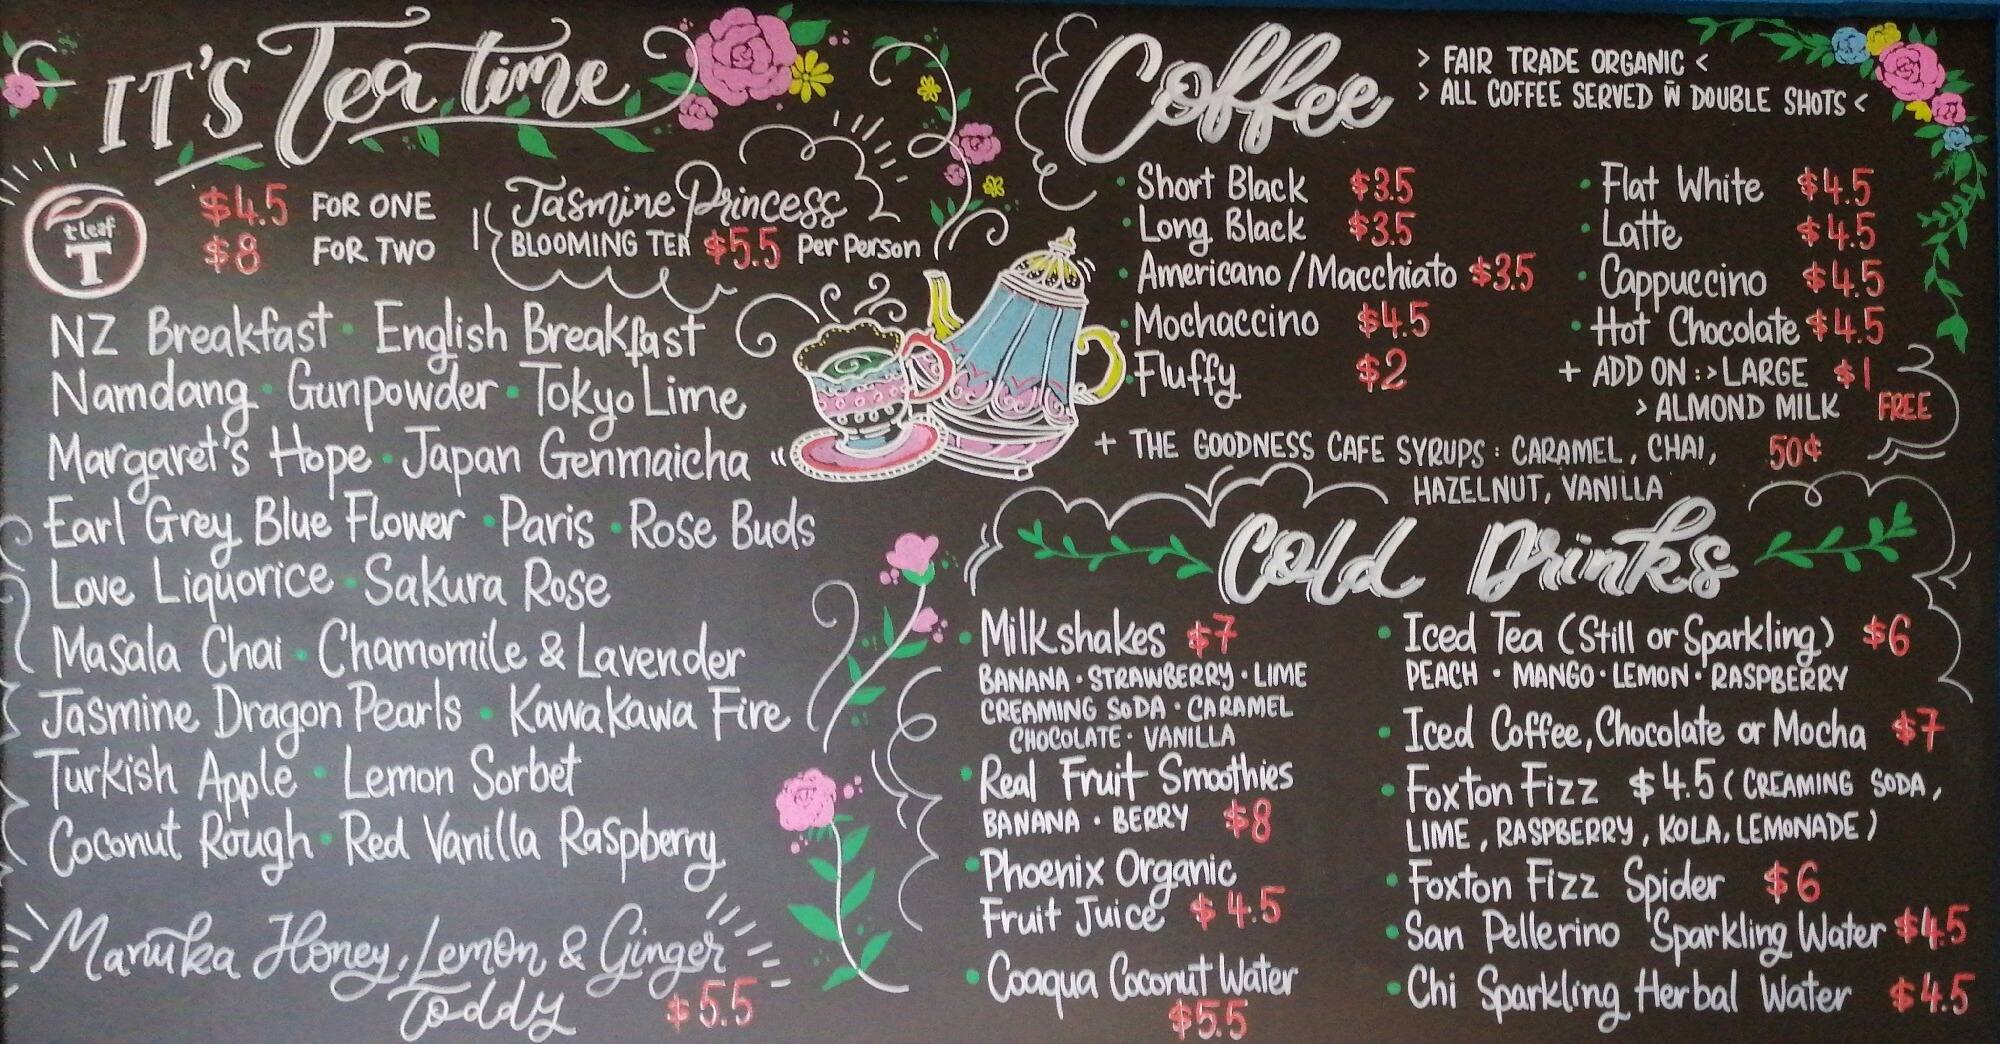 IT'S Tea time
t leaf
T
$4.5 FOR ONE
$8 FOR TWO
Jasmine Princess
BLOOMING TEA $5.5 Per Person
NZ Breakfast · English Breakfast
Namdang · Gunpowder · Tokyo Lime
Margaret's Hope · Japan Genmaicha
Earl Grey Blue Flower · Paris · Rose Buds
Love Liquorice · Sakura Rose
Masala Chai · Chamomile & Lavender
Jasmine Dragon Pearls · Kawakawa Fire
Turkish Apple · Lemon Sorbet
Coconut Rough · Red Vanilla Raspberry
Manuka Honey, Lemon & Ginger
Toddy $5.5
Coffee
> FAIR TRADE ORGANIC <
> ALL COFFEE SERVED W DOUBLE SHOTS <
· Short Black $3.5
· Long Black $3.5
· Americano / Macchiato $3.5
· Mochaccino $4.5
· Fluffy $2
· Flat White $4.5
· Latte $4.5
· Cappuccino $4.5
· Hot Chocolate $4.5
+ ADD ON :> LARGE $1
> ALMOND MILK FREE
+ THE GOODNESS CAFE SYRUPS : CARAMEL, CHAI, 50¢
HAZELNUT, VANILLA
Cold Drinks
· Milkshakes $7
BANANA · STRAWBERRY · LIME
CREAMING SODA · CARAMEL
CHOCOLATE · VANILLA
· Real Fruit Smoothies
BANANA · BERRY $8
· Phoenix Organic
Fruit Juice $4.5
· Coaqua Coconut Water
$5.5
· Iced Tea (Still or Sparkling) $6
PEACH · MANGO · LEMON · RASPBERRY
· Iced Coffee, Chocolate or Mocha $7
· Foxton Fizz $4.5 (CREAMING SODA,
LIME, RASPBERRY, KOLA, LEMONADE)
· Foxton Fizz Spider $6
· San Pellerino Sparkling Water $4.5
· Chi Sparkling Herbal Water $4.5